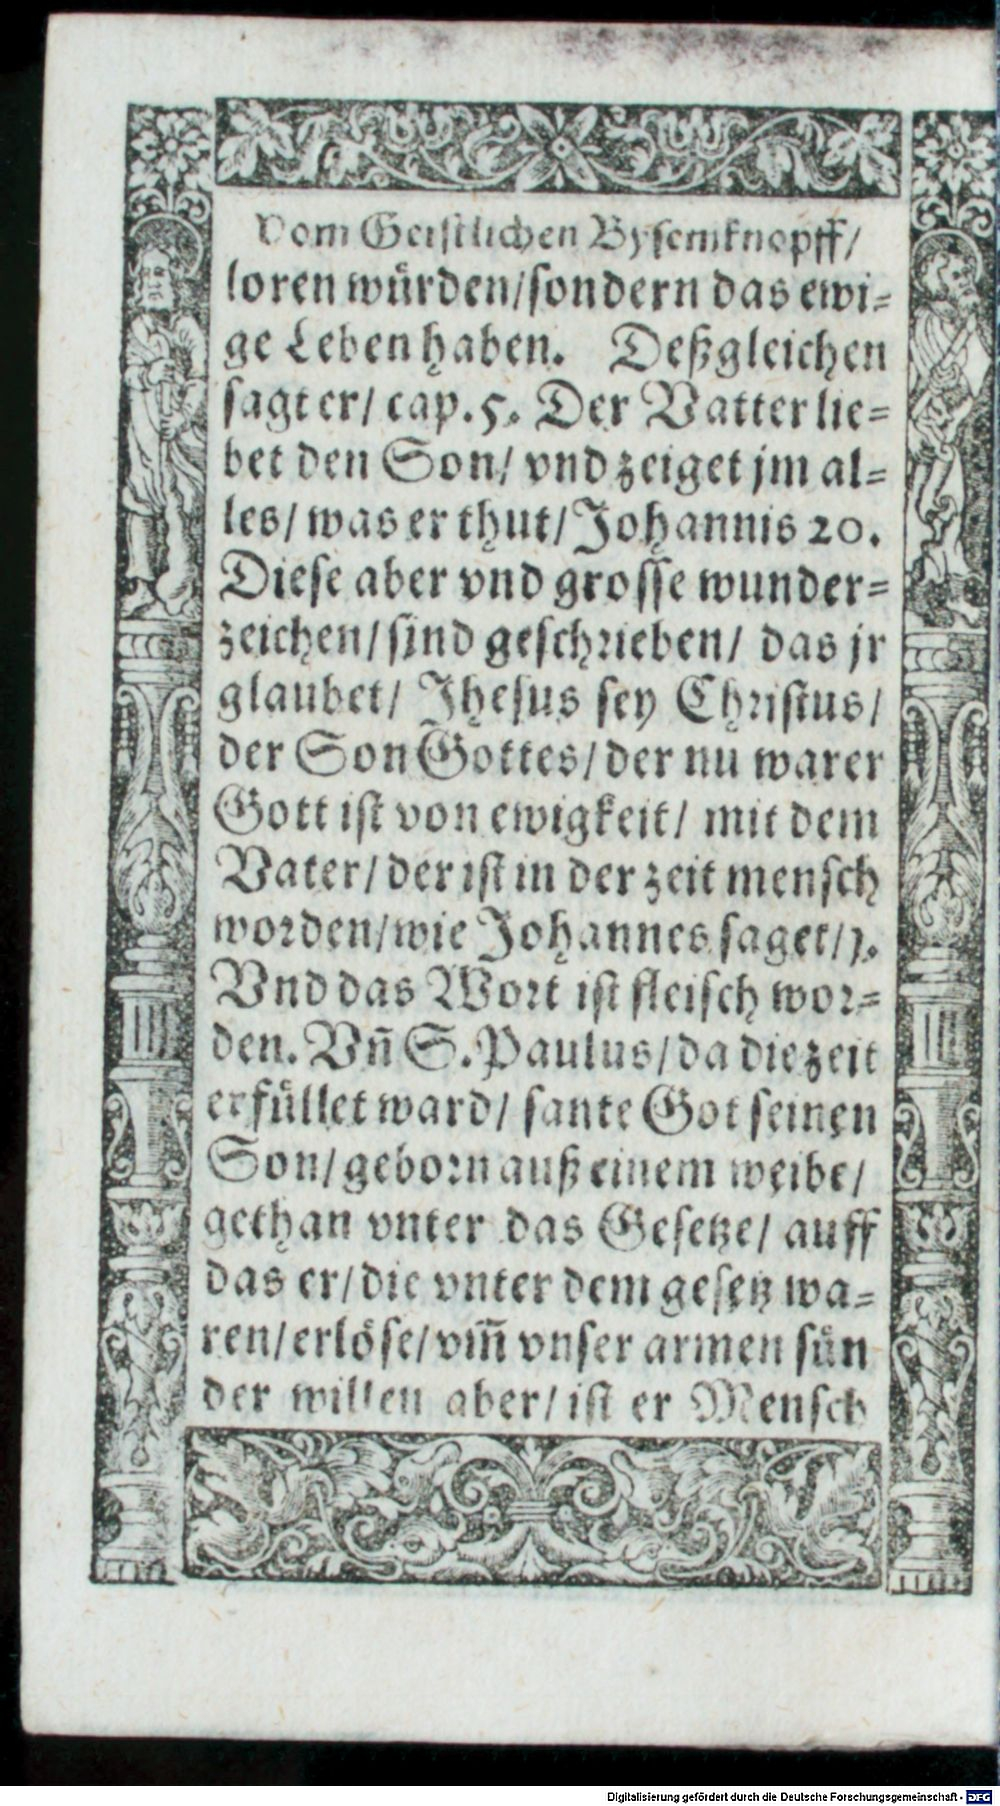 Vom Geistlichen Bysemknopff/
loren würden/sondern das ewi=
ge Leben haben. Deßgleichen
sagt er/ cap. 5. Der Vatter lie=
bet den Son/ vnd zeiget jm al=
les/ was er thut/ Johannis 20.
Diese aber vnd grosse wunder=
zeichen/ sind geschrieben/ das jr
glaubet/ Jhesus sey Christus/
der Son Gottes/ der nu warer
Gott ist von ewigkeit/ mit dem
Vater/ der ist in der zeit mensch
worden/wie Johannes saget/1.
Vnd das Wort ist fleisch wor=
den. Vñ S. Paulus/ da die zeit
erfüllet ward/ sante Got seinen
Son/ geborn auß einem weibe/
gethan vnter das Gesetze/ auff
das er/ die vnter dem gesetz wa=
ren/ erlöse/ vm̃ vnser armen sün
der willen aber/ ist er Mensch
Digitalisierung gefördert durch die Deutsche Forschungsgemeinschaft - DFG